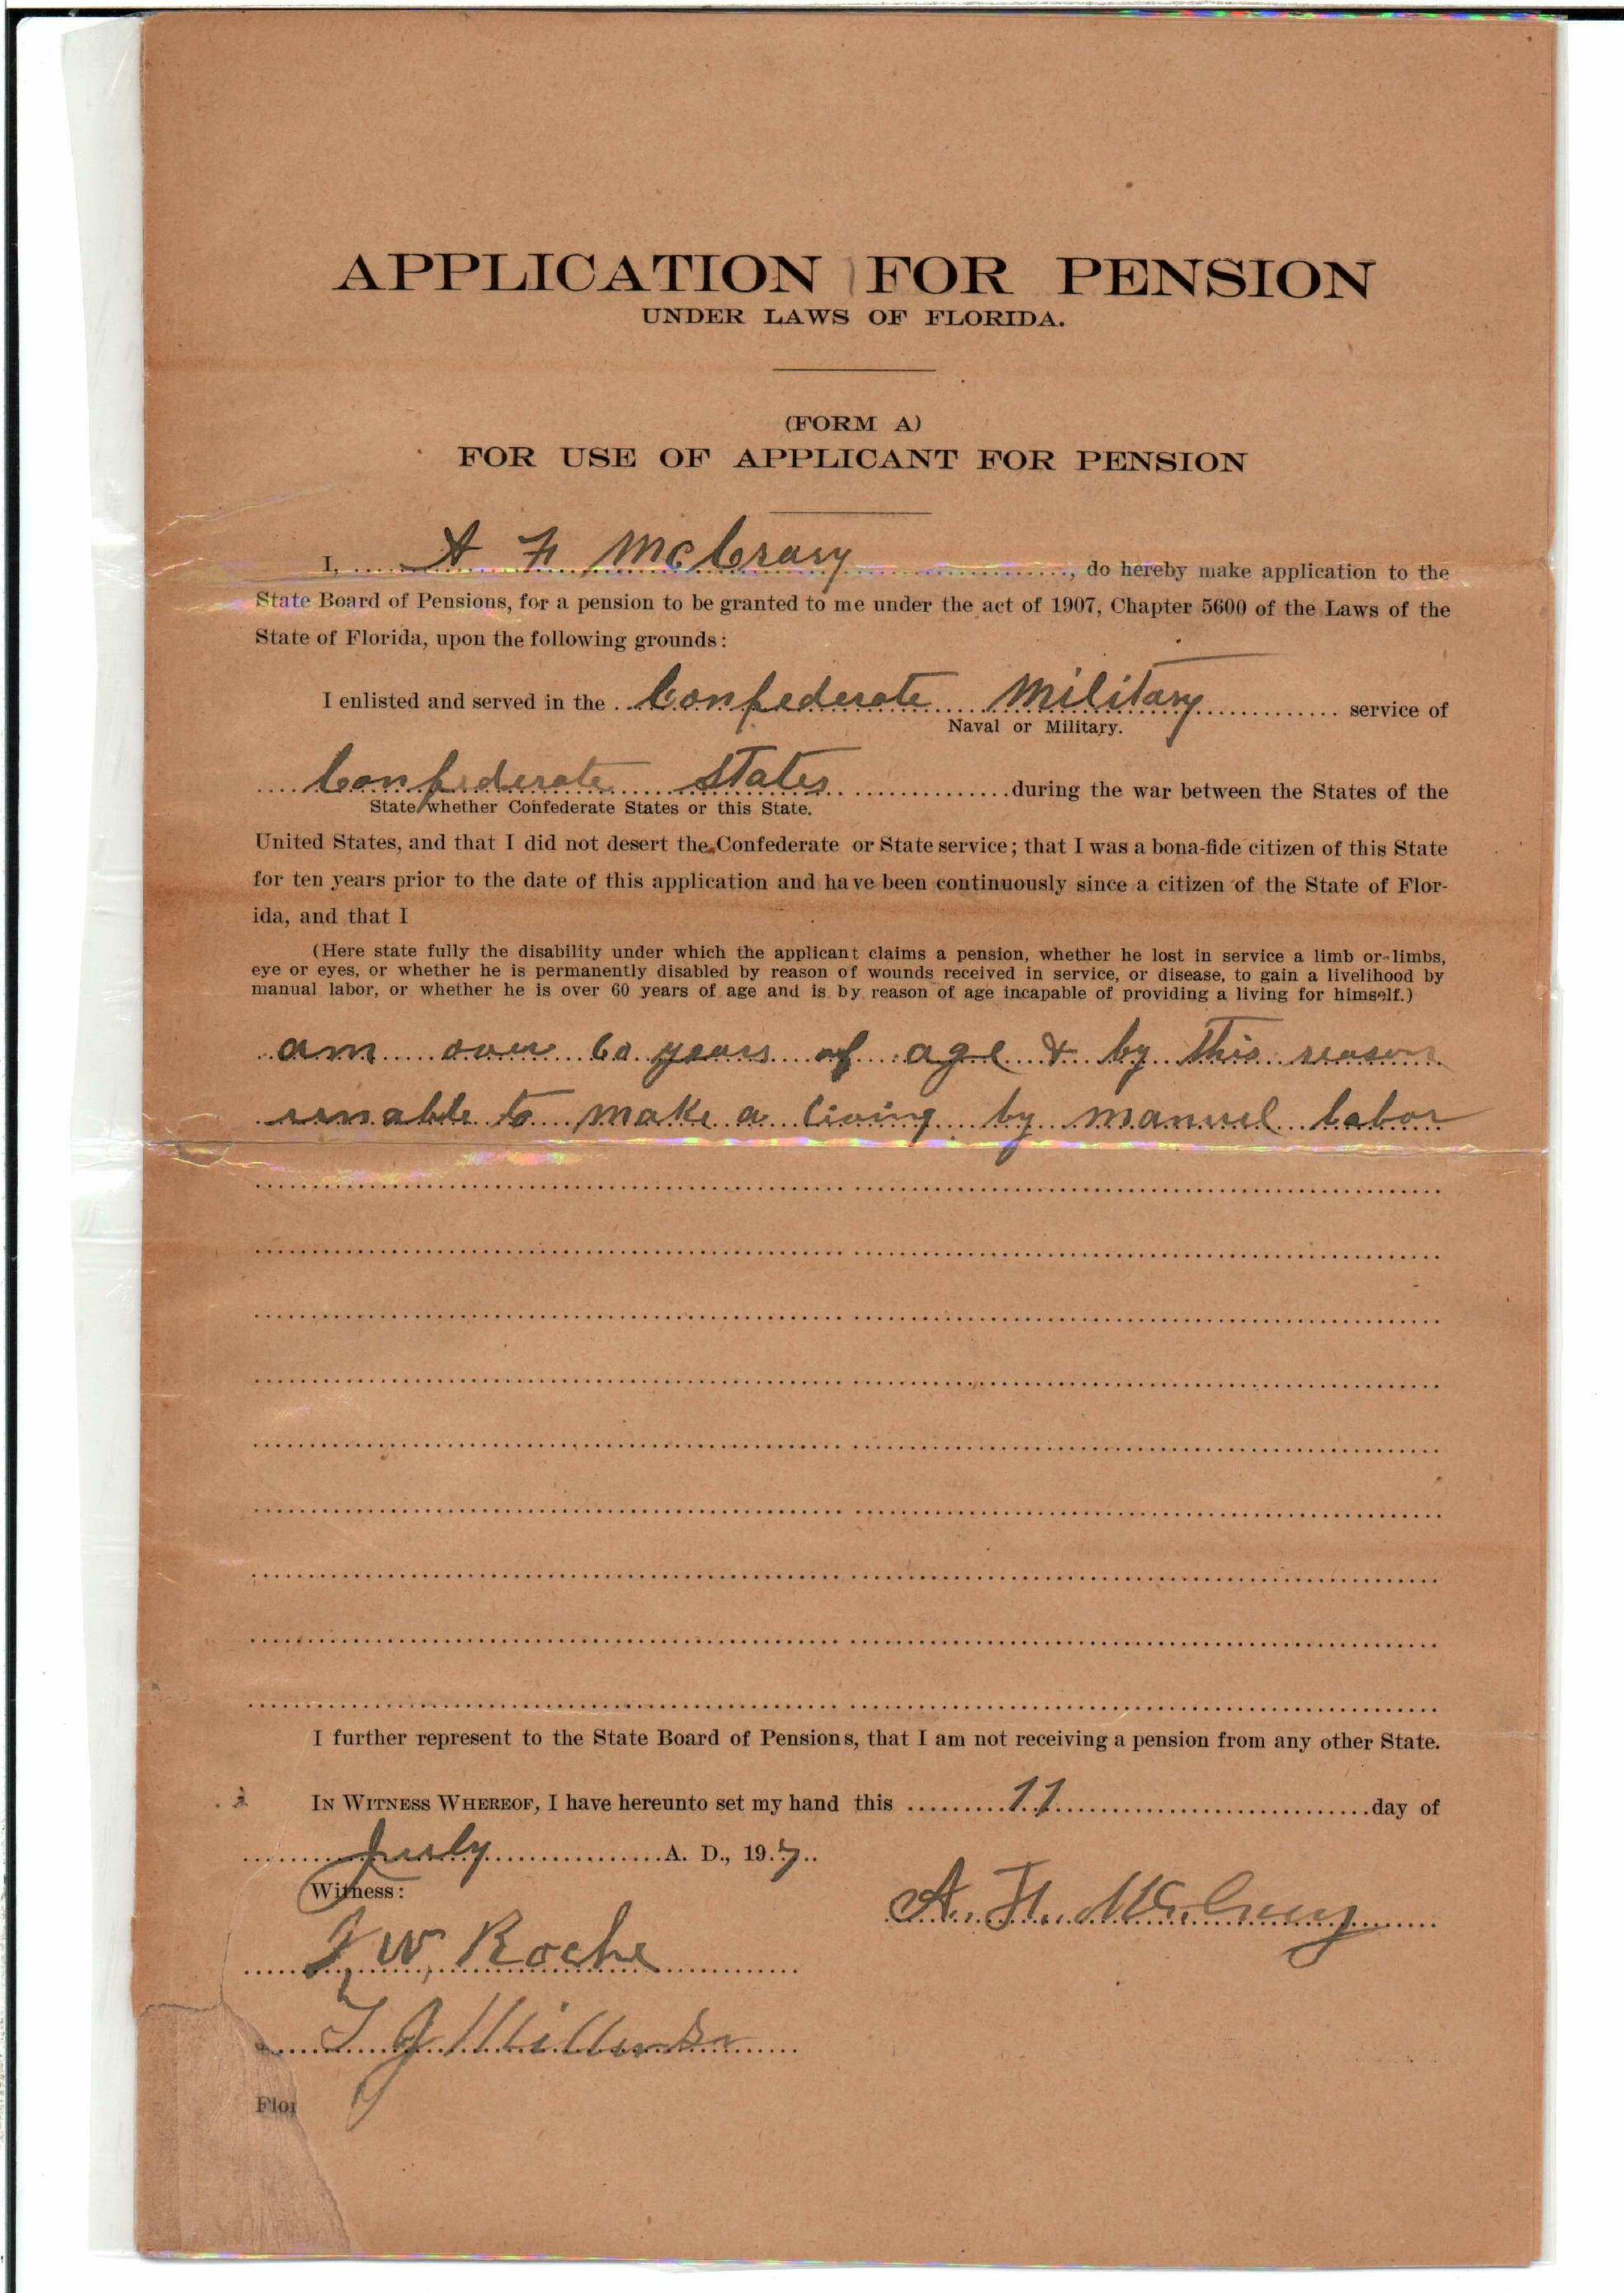 APPLICATION FOR PENSION
UNDER LAWS OF FLORIDA.
(FORM A)
FOR USE OF APPLICANT FOR PENSION
I, A F McCrary, do hereby make application to the
State Board of Pensions, for a pension to be granted to me under the act of 1907, Chapter 5600 of the Laws of the
State of Florida, upon the following grounds:
I enlisted and served in the Confederate Military service of
Naval or Military.
Confederate States during the war between the States of the
State whether Confederate States or this State.
United States, and that I did not desert the Confederate or State service; that I was a bona-fide citizen of this State
for ten years prior to the date of this application and have been continuously since a citizen of the State of Flor-
ida, and that I
(Here state fully the disability under which the applicant claims a pension, whether he lost in service a limb or limbs,
eye or eyes, or whether he is permanently disabled by reason of wounds received in service, or disease, to gain a livelihood by
manual labor, or whether he is over 60 years of age and is by reason of age incapable of providing a living for himself.)
am over 60 years of age & by this reason
unable to make a living by manuel labor
I further represent to the State Board of Pensions, that I am not receiving a pension from any other State.
IN WITNESS WHEREOF, I have hereunto set my hand this 11 day of
July A. D., 19 7
Witness:
A. F. McCrary
J W Roche
T J
Flor